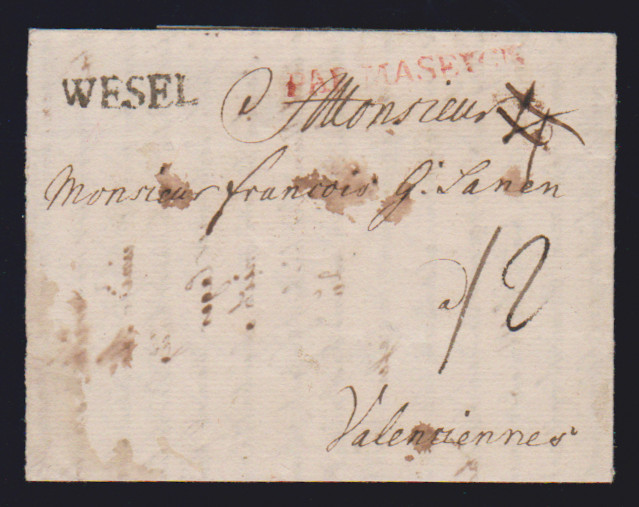 WESEL
PAR MASEYCK
A Monsieur
Monsieur francois G. Sanen
a
12
Valenciennes